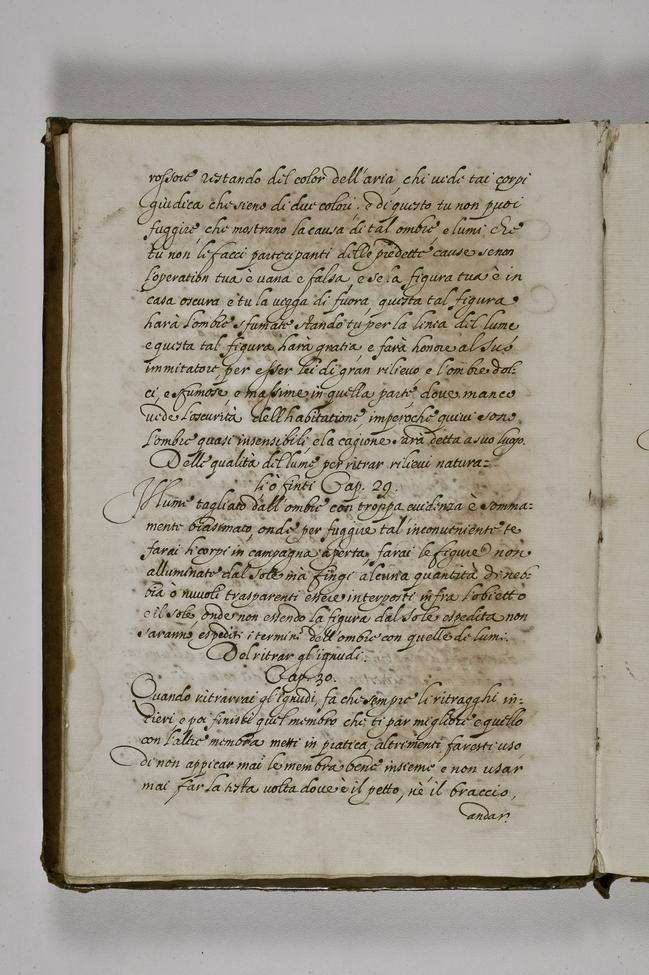 rossore restando del color dell'aria, chi vede tai corpi
giudica che siene di due colori. e di questo tu non puoi
fuggire che mostrano la causa di tal ombre e lumi che
tu non le facci partecipanti delle predette cause se non
l'operation tua è vana e falsa, e se la figura tua è in
casa oscura e tu la vegga di fuora, questa tal figura
harà l'ombre sfumate stando tu per la linea del lume
e questa tal figura harà gratia e farà honore al suo
immitatore, per esser lei di gran rilievo e l'ombre dol-
ci, e sfumose e massime in quella parte dove manco
vede l'oscurità dell'habitatione, imperoche quivi sono
l'ombre quasi insensibili e la cagione sarà detta a suo luogo.
Delle qualità del lume per ritrar rilievi natura=
li ò finti Cap. 29.
Il lume tagliato dall'ombre con troppa evidenza è somma=
mente biasimato, onde per fuggire tal inconveniente se
farai li corpi in campagna aperta, farai le figure non
alluminate dal sole mà fingi alcuna quantità di neb=
bia ò nuvoli trasparenti essere interposti infra l'obietto
e il sole, onde non essendo la figura dal sole espedita non
saranno espediti i termini dell'ombre con quelle de lumi.
Del ritrar gl'ignudi.
Cap. 30.
Quando ritrarrai gl'ignudi, fa che sempre li ritragghi in-
tieri e poi finisci quel membro che ti par migliore e quello
con l'altre membra metti in pratica, altrimenti faresti uso
di non appicar mai le membra bene insieme e non usar
mai far la testa volta dove è il petto, nè il braccio,
andar